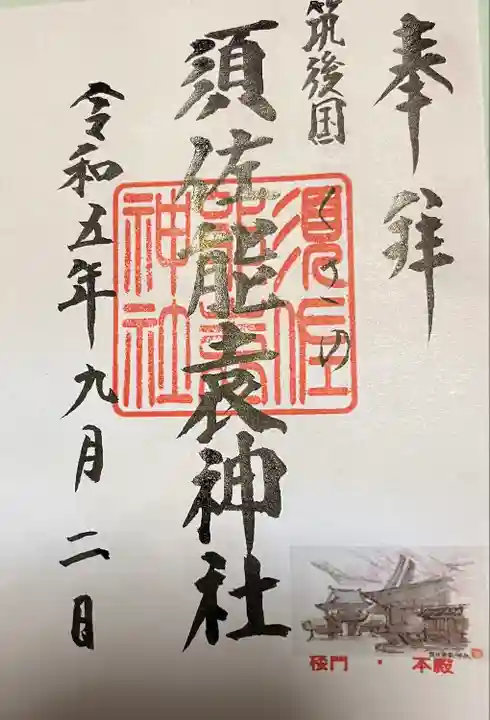 奉拝
筑後国
くさの
須佐能袁神社
須佐
能袁
神社
令和五年九月二日
楼門・本殿